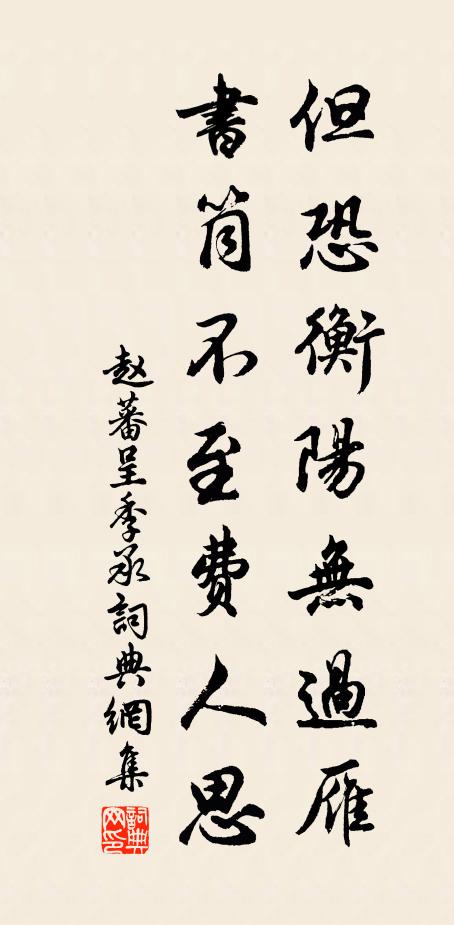 但恐衡陽無過雁
書筒不至費人思
赵蕃呈季承詞典網集
詞典
网印